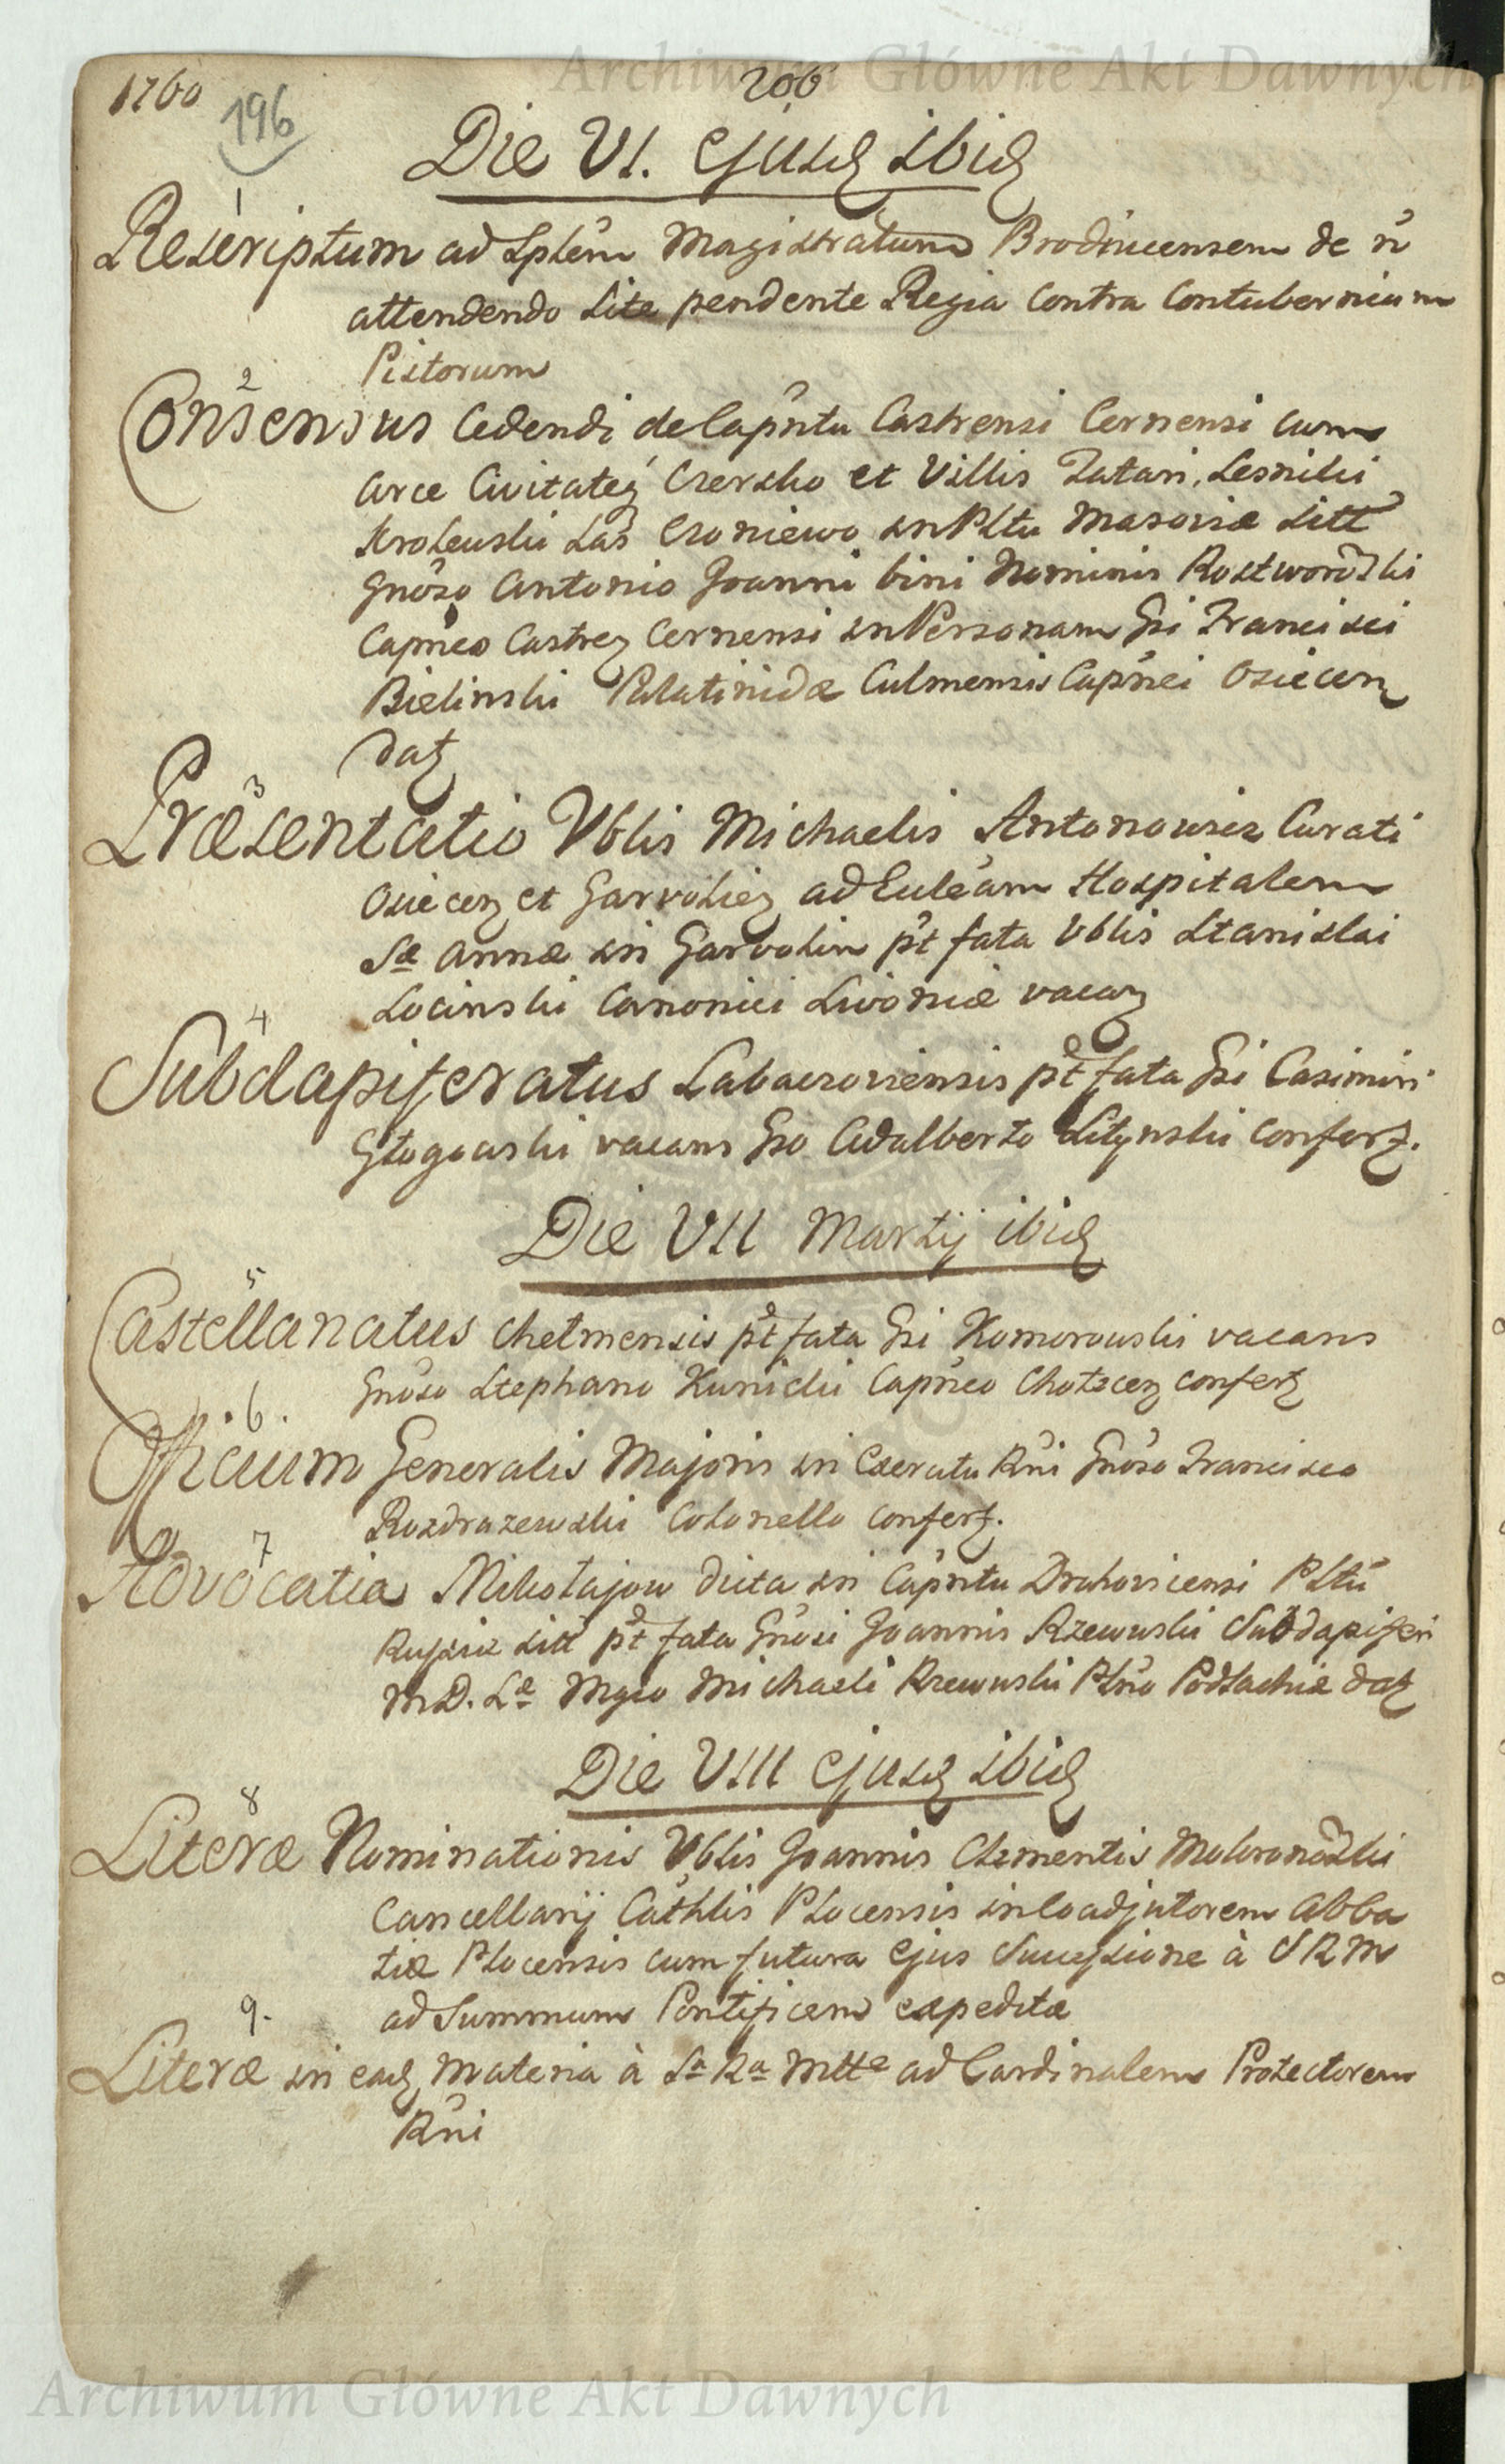 Archiwum Główne Akt Dawnych
1760 206
196
Die VI. ejusd ibid
1
Rescriptum ad Splem Magistratum Brodnicensem de n
attendendo Lite pendente Regia Contra Contubernium
Pistorum
2
Consensus Cedendi de Capntu Castrensi Cernensi cum
Arce Civitateq Czersko et Villis Tatari, Lesniki
Krolewski Las Czoniewo in Pltu Masoviæ Litt
Gnoso Antonio Joanni bini Nominis Rostworowski
Capneo Castren Cernensi in Personam Gsi Francisci
Bielinski Palatinidæ Culmensis Capnei Osiecen
datz
3
Præsentatio Vblis Michaelis Antonowicz Curati
Osiecen et Garvolien ad Ecleam Hospitalem
Sæ Annæ in Garvolin pt fata Vblis Stanislai
Locinski Canonici Livoniæ vacan
4
Subdapiferatus Labaczoviensis pt fata Gsi Casimiri
Głogowski vacans Gso Adalberto Litynski confertz.
Die VII Martij ibid
5
Castellanatus Chelmensis pt fata Gsi Komorowski vacans
Gnoso Stephano Kunicki Capneo Chotzcen confertz
.6.
Officium Generalis Majoris in Exercitu Rni Gnoso Francisco
Rozdrazewski Colonello confertz.
7
Advocatia Mikołajow dicta in Capntu Drohoviciensi Pltu
Russiæ Litt pt fata Gnosi Joannis Rzewuski Subdapiferi
M.D. Læ Mgco Michaeli Rzewuski Plno Podlachiæ datz
Die VIII ejusd ibid
8
Literæ Nominationis Vblis Joannis Clementis Mokronoski
Cancellarij Cathlis Plocensis in Coadjutorem Abba
tiæ Plocensis cum futura ejus Successione à SRM
9. ad Summum Pontificem expeditæ
Literæ in ead Materia à Sa Ra Mtte ad Cardinalem Protectorem
Rni
Archiwum Główne Akt Dawnych